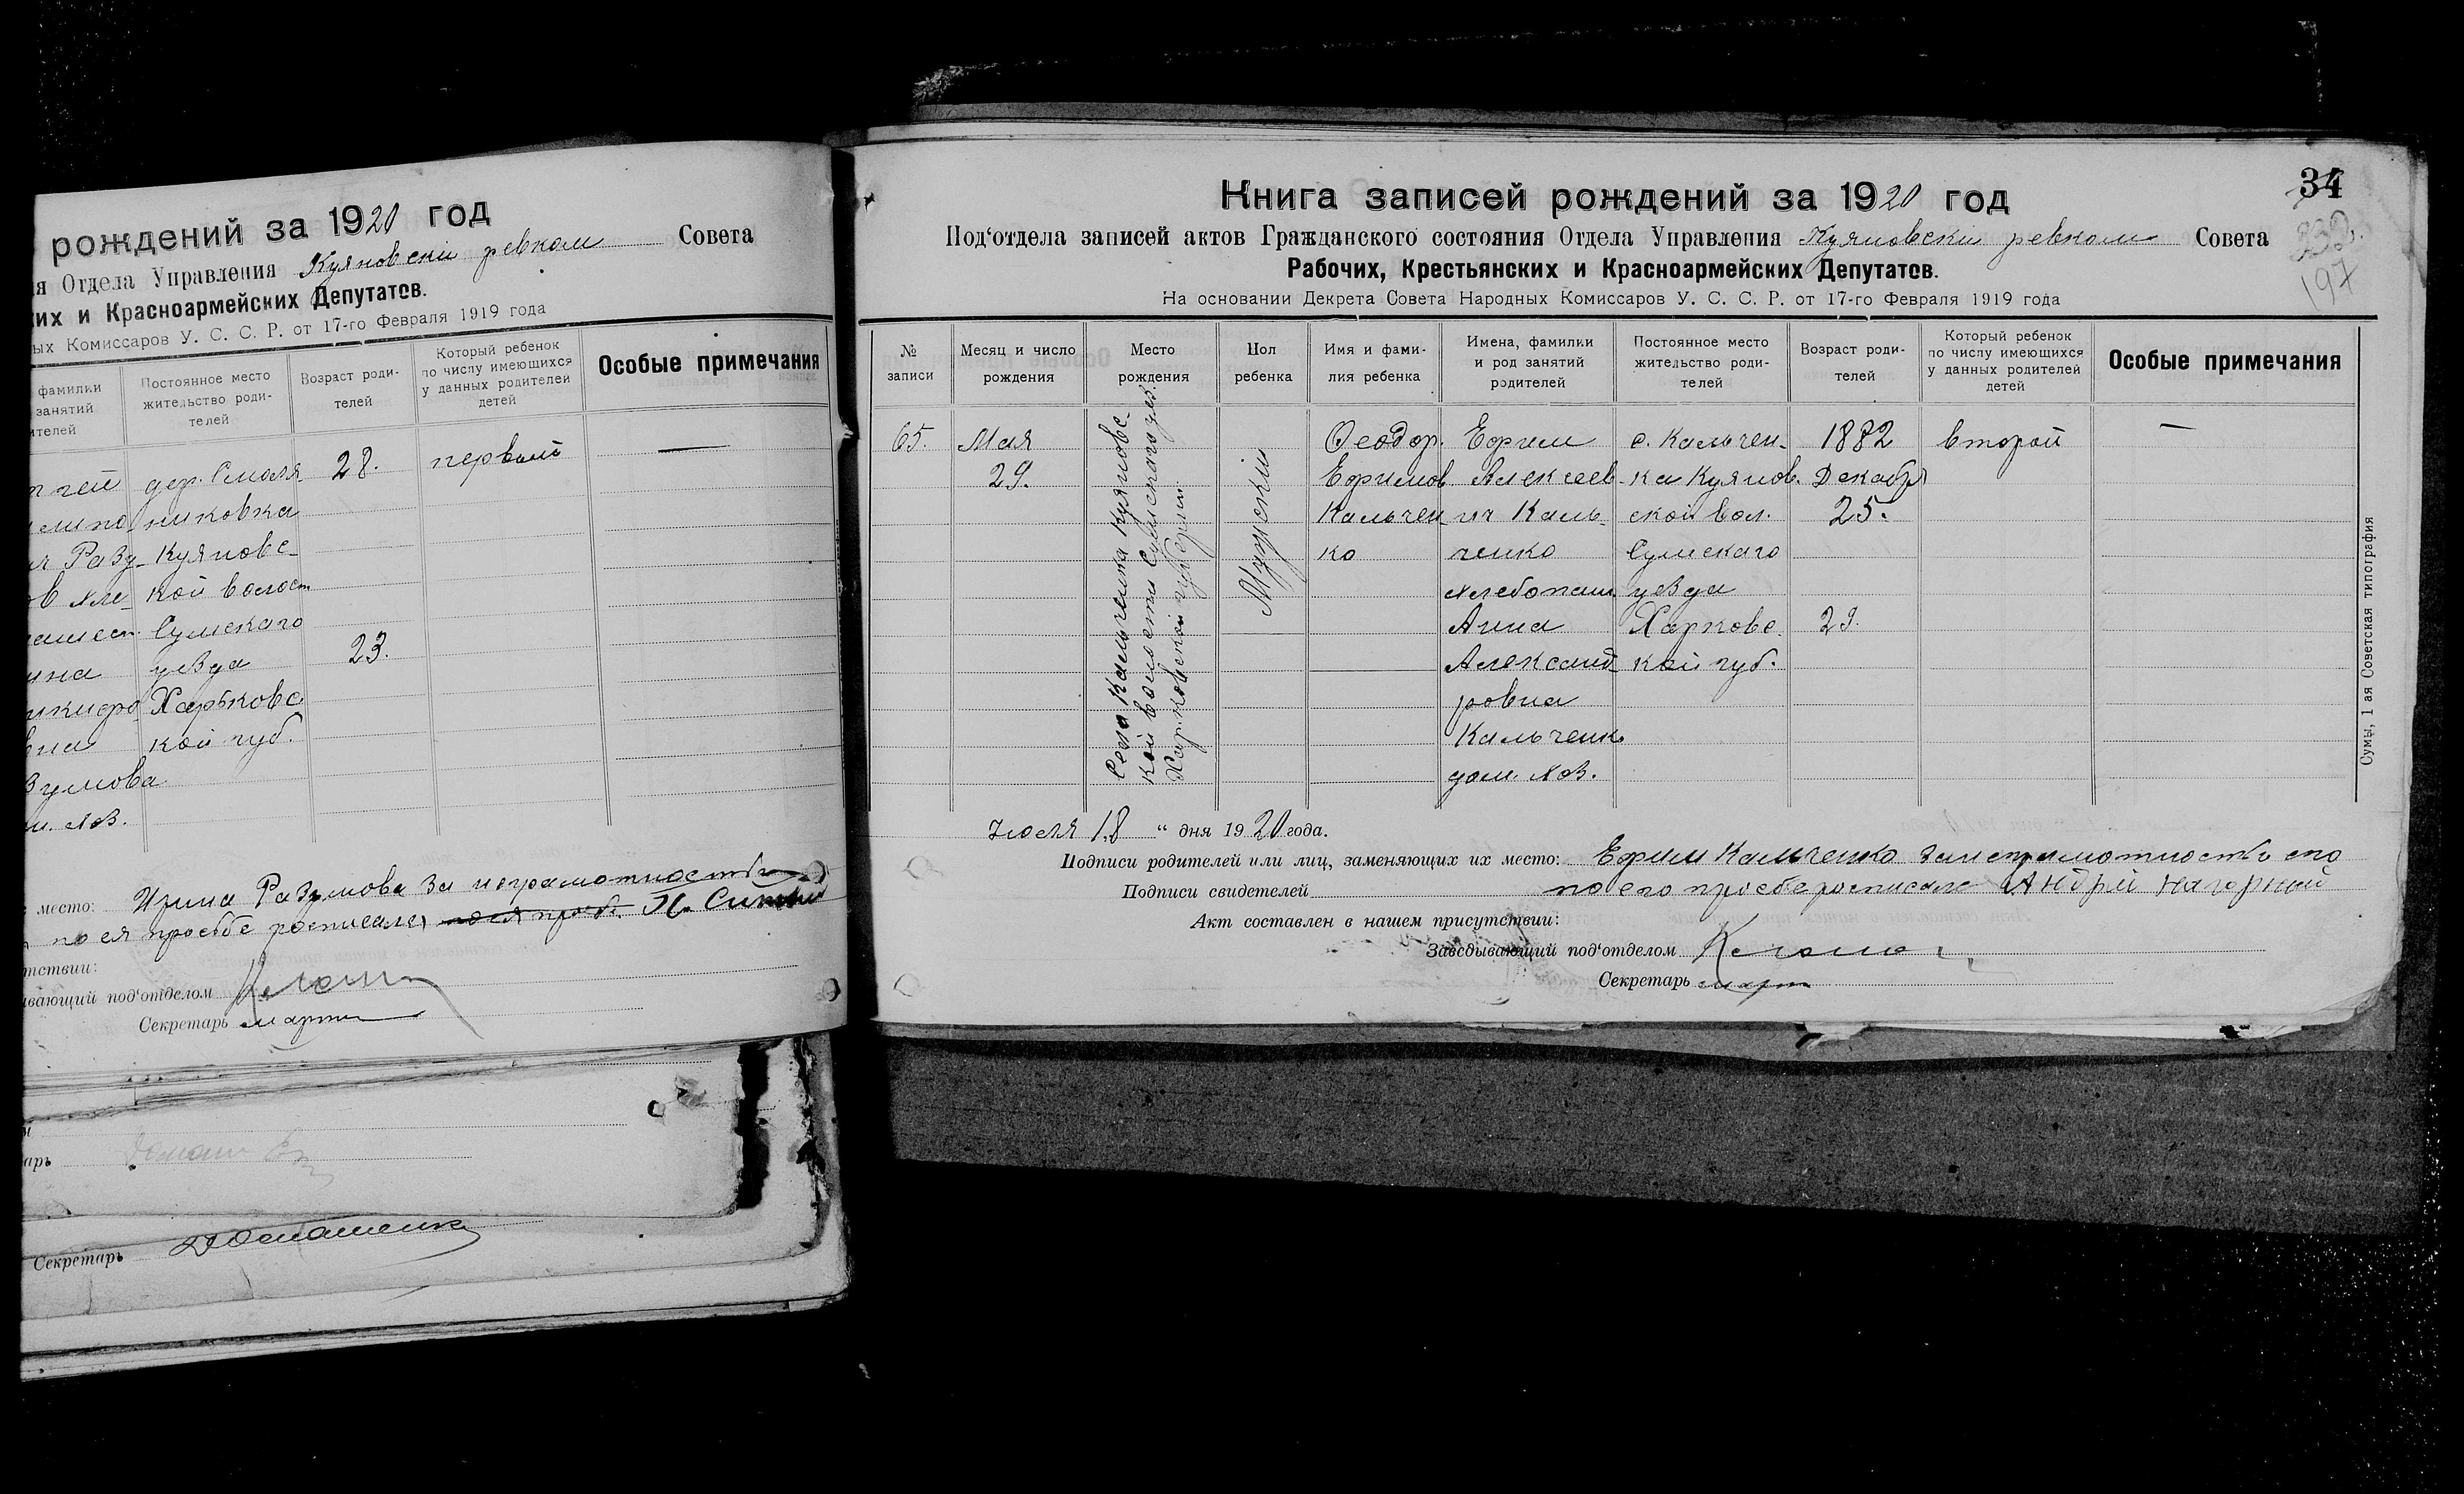 рождений за 1920 год
ия Отдела Управления Куяновски ревком Совета
ких и Красноармейских Депутатов.
ых Комиссаров У. С. С. Р. от 17-го Февраля 1919 года
фамилии
занятий
ителей
Постоянное место
жительство роди-
телей
Возраст роди-
телей
Который ребенок
по числу имеющихся
у данных родителей
детей
Особые примечания
дер. Смаля 28. первый —
никовка
ич Разу- Куяновс-
кой волост.
Сумского
уезда 23.
Харьковс
вна кой губ.
зумова
м. хоз.
место: Ирина Разумова За неграмотностью
по ея просьбе росписался
тствии:
ывающий под‘отделом
Секретарь март
арь
Секретарь
34
232.
197
Книга записей рождений за 1920 год
Под‘отдела записей актов Гражданского состояния Отдела Управления Куяновски ревком Совета
Рабочих, Крестьянских и Красноармейских Депутатов.
На основании Декрета Совета Народных Комиссаров У. С. С. Р. от 17-го Февраля 1919 года
№
записи
Месяц и число
рождения
Место
рождения
Пол
ребенка
Имя и фами-
лия ребенка
Имена, фамилии
и род занятий
родителей
Постоянное место
жительство роди-
телей
Возраст роди-
телей
Который ребенок
по числу имеющихся
у данных родителей
детей
Особые примечания
65. Мая
29.
Село Кальченка Куяновс-
кой волости Сумскаго уез.
Харковской губернии
Мужской
Феодор.
Ефимов
Кальчен-
ко
Ефим
Алексеев-
ич Каль-
ченко
хлебопаш.
Анна
Александ-
ровна
Кальченк
дом. хоз.
с. Кальчен-
ка Куянов.
ской вол.
Сумскаго
уезда
Харковс.
кой губ.
1882
Декабр
25.
23.
второй
—
Июля 18 “ дня 1920 года.
Подписи родителей или лиц, заменяющих их место: Ефим Кальченко за неграмотностью его
Подписи свидетелей по его просьбе росписался Андрей Нагорный
Акт составлен в нашем присутствии:
Заведывающий под‘отделом
Секретарь март
Сумы, 1 ая Советская типография